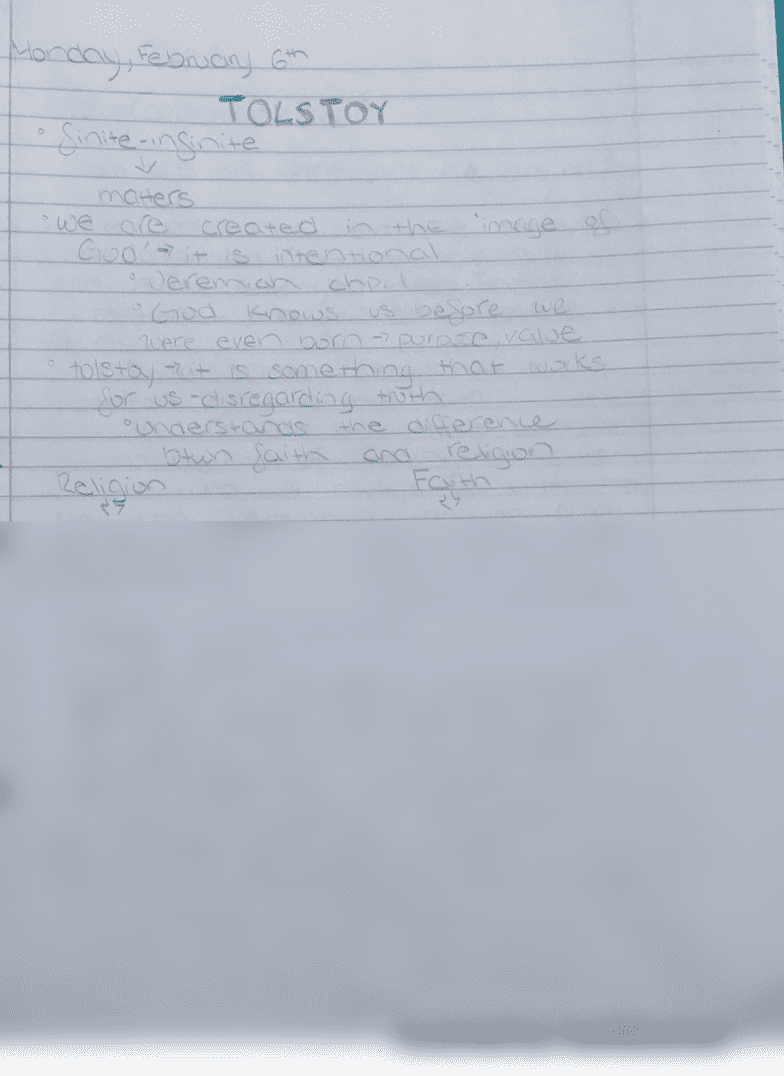 Monday, February 6th
TOLSTOY
• finite-infinite
↓
matters
• we are created in the 'image of
God' → it is intentional
• Jeremiah chp. 1
• God knows us before we
were even born → purpose, value
• tolstoy → it is something that works
for us - disregarding truth
• understands the difference
btwn faith and religion
Religion Faith